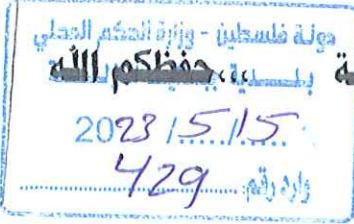 دولة فلسطين - وزارة الحكم المحلي
بلدية
حفظكم الله ،،
2023/5/15
وارد رقم: 429